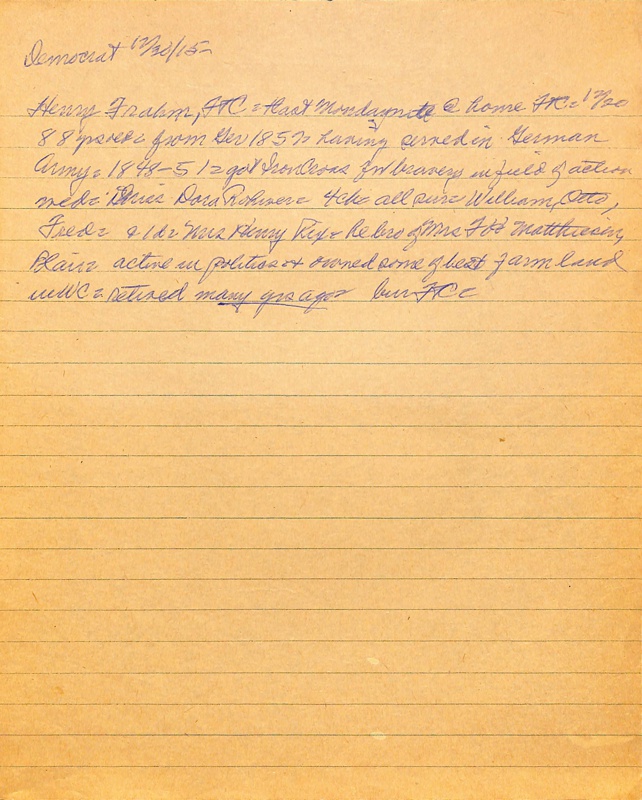 Democrat 12/30/15-
Henry Frahm, FTC = last Monday nite @ home FTC = 12/20
88 yrs old = from Ger 1857 = having served in German
Army = 1848-51 = got Iron Cross for bravery in field of action
med = Dora Rohwer = 4ch = all surv William, Otto,
Fred = & 1d = Mrs Henry Rix = he bro of Mrs Matthiesen,
Blair = active in politics & owned some of best farm land
in WC = retired many yrs ago = bur FTC =